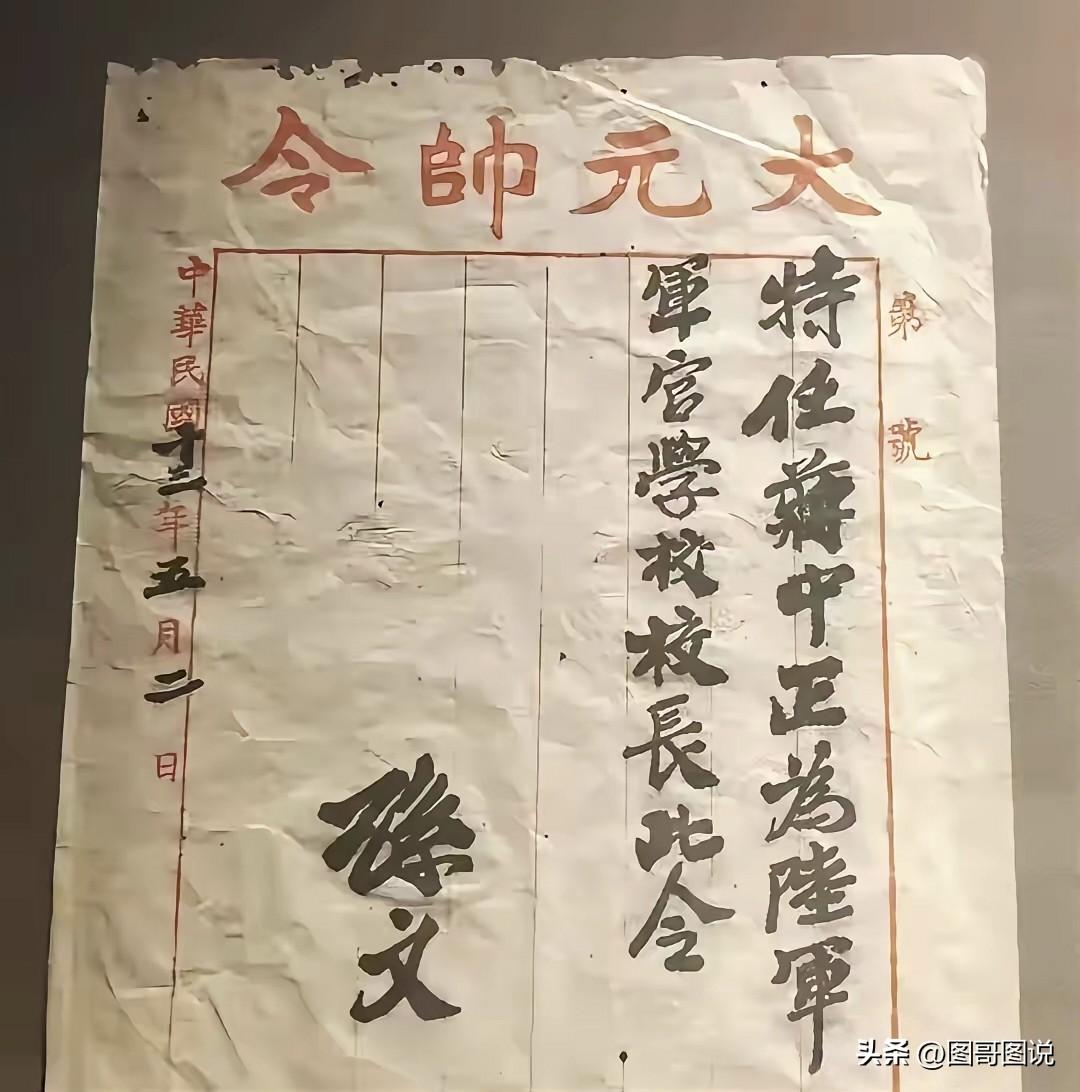 大元帥令
第 號
特任蔣中正為陸軍
軍官學校校長此令
孫文
中華民國十三年五月二日
头条 @图哥图说